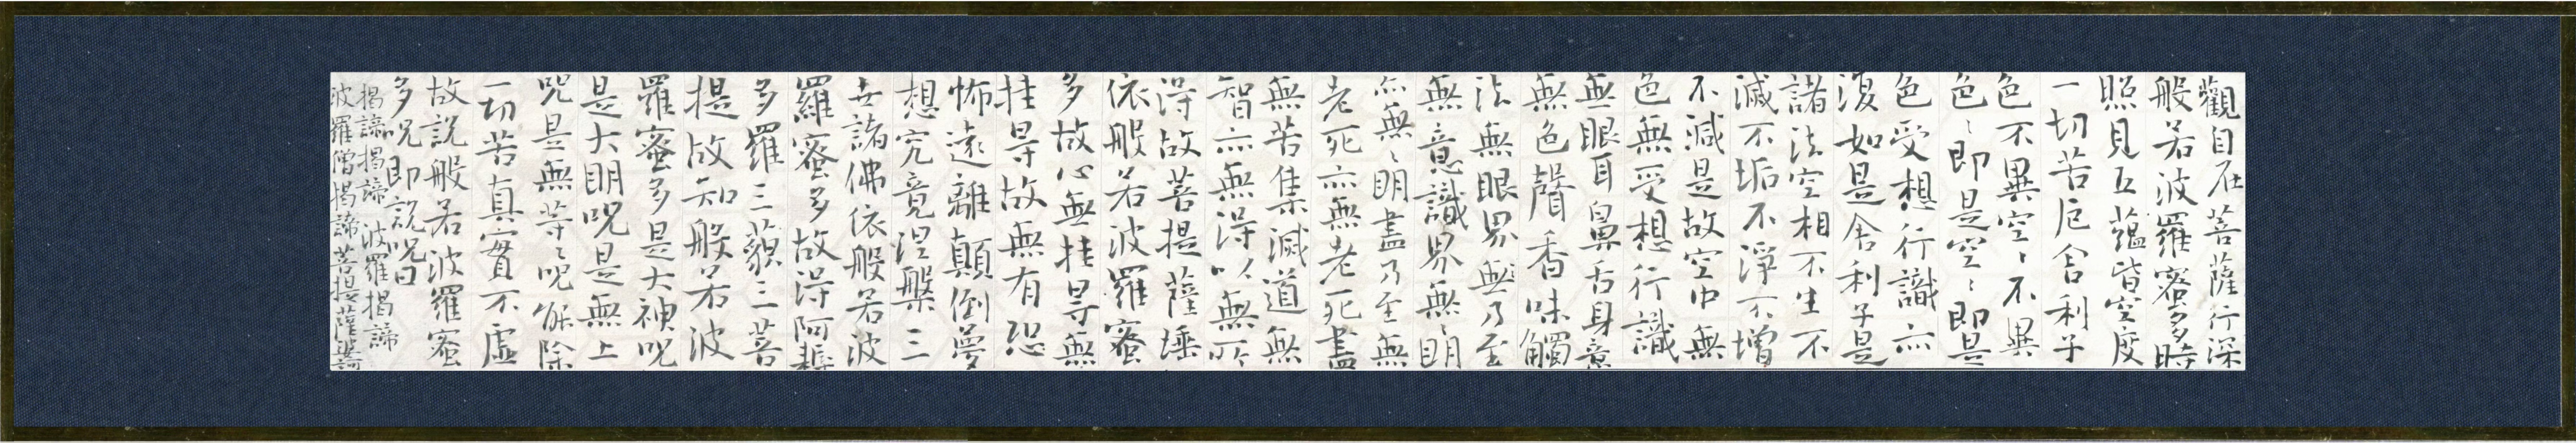 觀自在菩薩行深
般若波羅蜜多時
照見五蘊皆空度
一切苦厄舍利子
色不異空〻不異
色〻即是空〻即是
色受想行識亦
復如是舍利子是
諸法空相不生不
滅不垢不淨不增
不減是故空中無
色無受想行識
無眼耳鼻舌身意
無色聲香味觸
法無眼界無乃至
無意識界無〻明
亦無〻明盡乃至無
老死亦無老死盡
無苦集滅道無
智亦無得以無所
得故菩提薩埵
依般若波羅蜜
多故心無挂㝵無
挂㝵故無有恐
怖遠離顛倒夢
想究竟涅槃三
世諸佛依般若波
羅蜜多故得阿耨
多羅三藐三菩
提故知般若波
羅蜜多是大神呪
是大明呪是無上
呪是無等〻呪能除
一切苦真實不虛
故說般若波羅蜜
多呪即說呪曰
揭諦揭諦波羅揭諦
波羅僧揭諦菩提薩婆訶